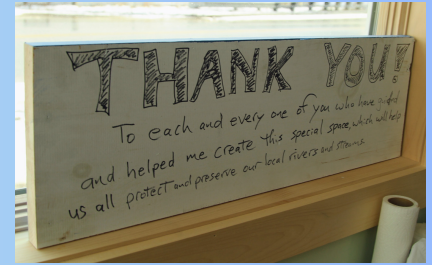 THANK YOU!
To each and every one of you who have guided
and helped me create this special space, which will help
us all protect and preserve our local rivers and streams.